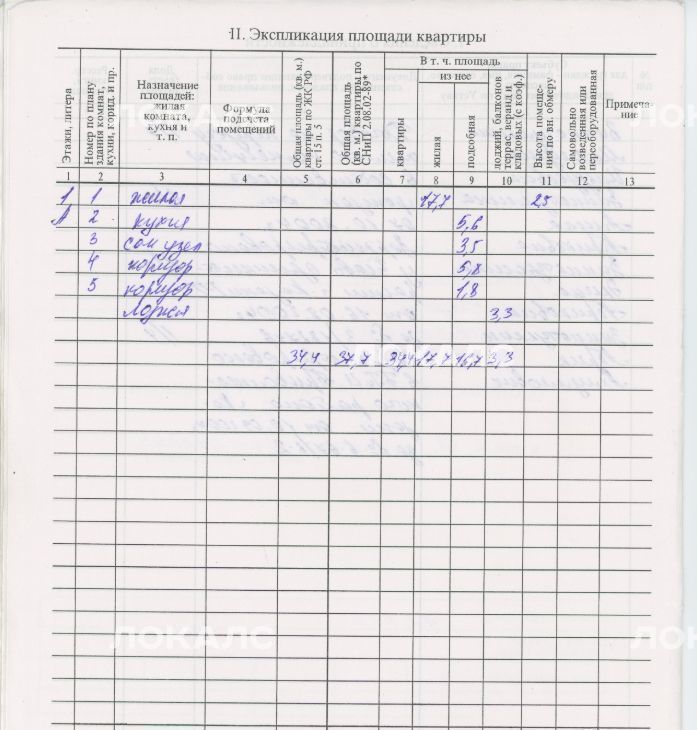 II. Экспликация площади квартиры
Этажи, литера
Номер по плану здания: комнат, кухни, корид, и пр.
Назначение площадей: жилая комната, кухня и т. п.
Формула подсчета помещений
Общая площадь (кв. м.) квартиры по ЖК РФ ст. 15 п. 5
Общая площадь (кв. м.) квартиры по СНиП 2.08.02-89*
В т. ч. площадь
из нее
квартиры
жилая
подсобная
лоджий, балконов террас, веранд и кладовых (с коэф.)
Высота помещения по вн. обмеру
Самовольно возведенная или переоборудованная
Примечание
1 2 3 4 5 6 7 8 9 10 11 12 13
1 1 жилая 17,7 25
А 2 кухня 5,6
3 сан узел 3,5
4 коридор 5,8
5 коридор 1,8
лоджия 3,3
34,4 37,7 34,4 17,7 16,7 3,3
ЛОКАЛС